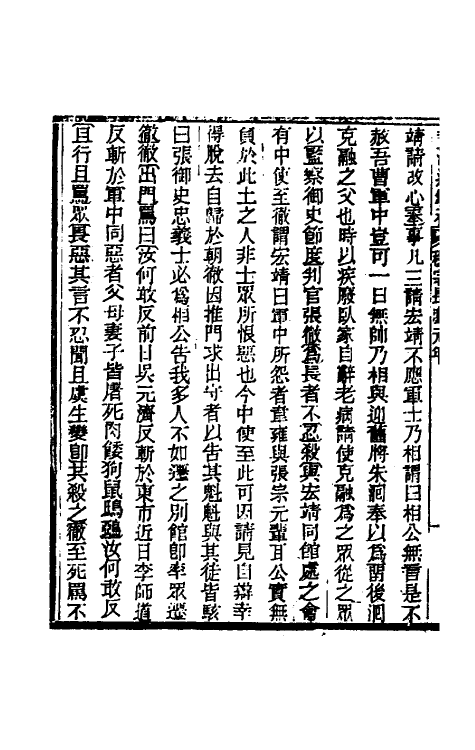 靖請改心葢事凡三請宏靖不應軍士乃相謂曰相公無言是不
赦吾曹軍中豈可一日無帥乃相與迎舊將朱洄奉以為留後洄
克融之父也時以疾廢臥家自辭老病請使克融為之眾從之眾
以監察御史節度判官張徹為長者不忍殺與宏靖同館處之會
有中使至徹謂宏靖曰軍中所怨者韋雍與張宗元輩耳公實無
負於此土之人非士眾所恨惡也今中使至此可因請見自辯幸
得脫去自歸於朝徹因推門求出守者以告其魁魁與其徒皆駭
曰張御史忠義士必為相公告我多人不如遷之別館即率眾遷
徹徹出門罵曰汝何敢反前日吳元濟反斬於東市近日李師道
反斬於軍中同惡者父母妻子皆屠死肉餧狗鼠鴟鴉汝何敢反
且行且罵眾畏惡其言不忍聞且虞生變即共殺之徹至死罵不